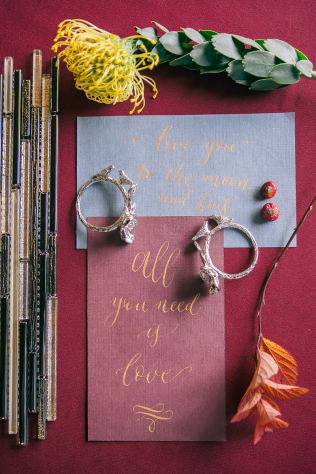 I love you
to the moon
and back
All
you need
is
love